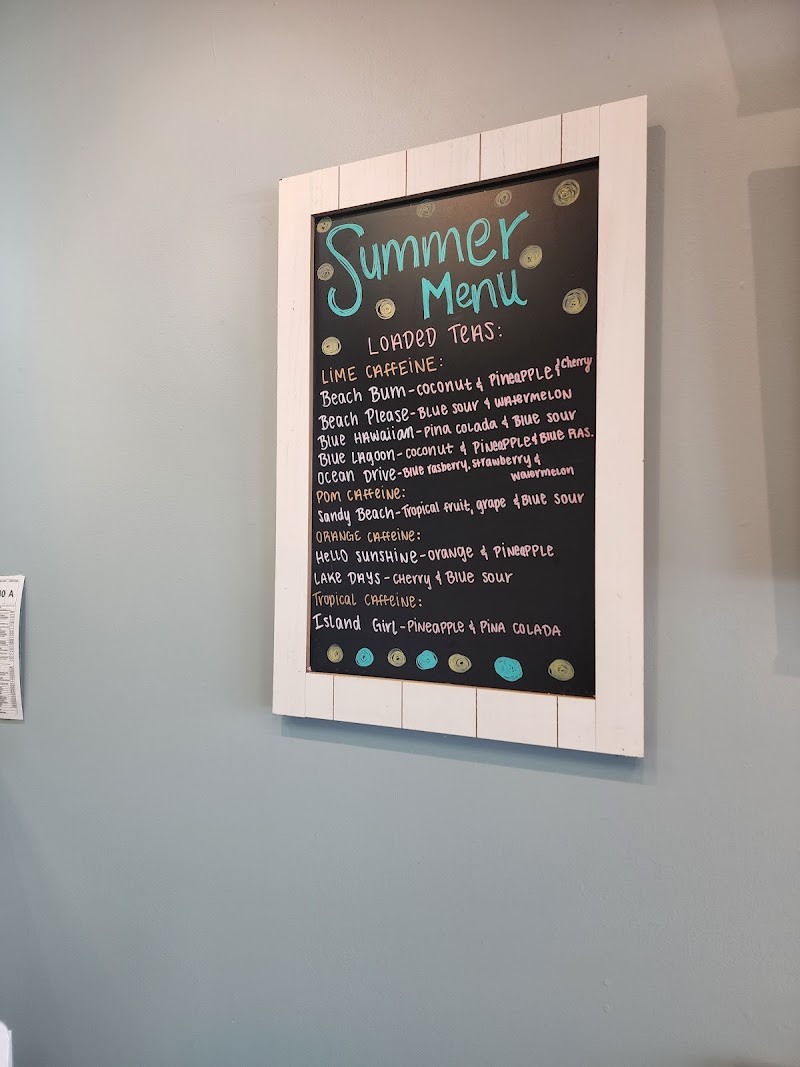 Summer
Menu
LOADED TEAS:
LIME CAFFEINE:
Beach Bum - COCONUT & PINEAPPLE & Cherry
Beach Please - BLUE SOUR & WATERMELON
Blue HAWAIIAN - PINA COLADA & BLUE SOUR
BLUE LAGOON - COCONUT & PINEAPPLE & BLUE RAS.
OCEAN DRIVE - BLUE RASBERRY, STRAWBERRY &
WATERMELON
POM CAFFEINE:
Sandy Beach - Tropical fruit, grape & BLUE SOUR
ORANGE CAFFEINE:
HELLO SUNSHINE - ORANGE & PINEAPPLE
LAKE DAYS - CHERRY & BLUE SOUR
Tropical CAFFEINE:
Island Girl - PINEAPPLE & PINA COLADA